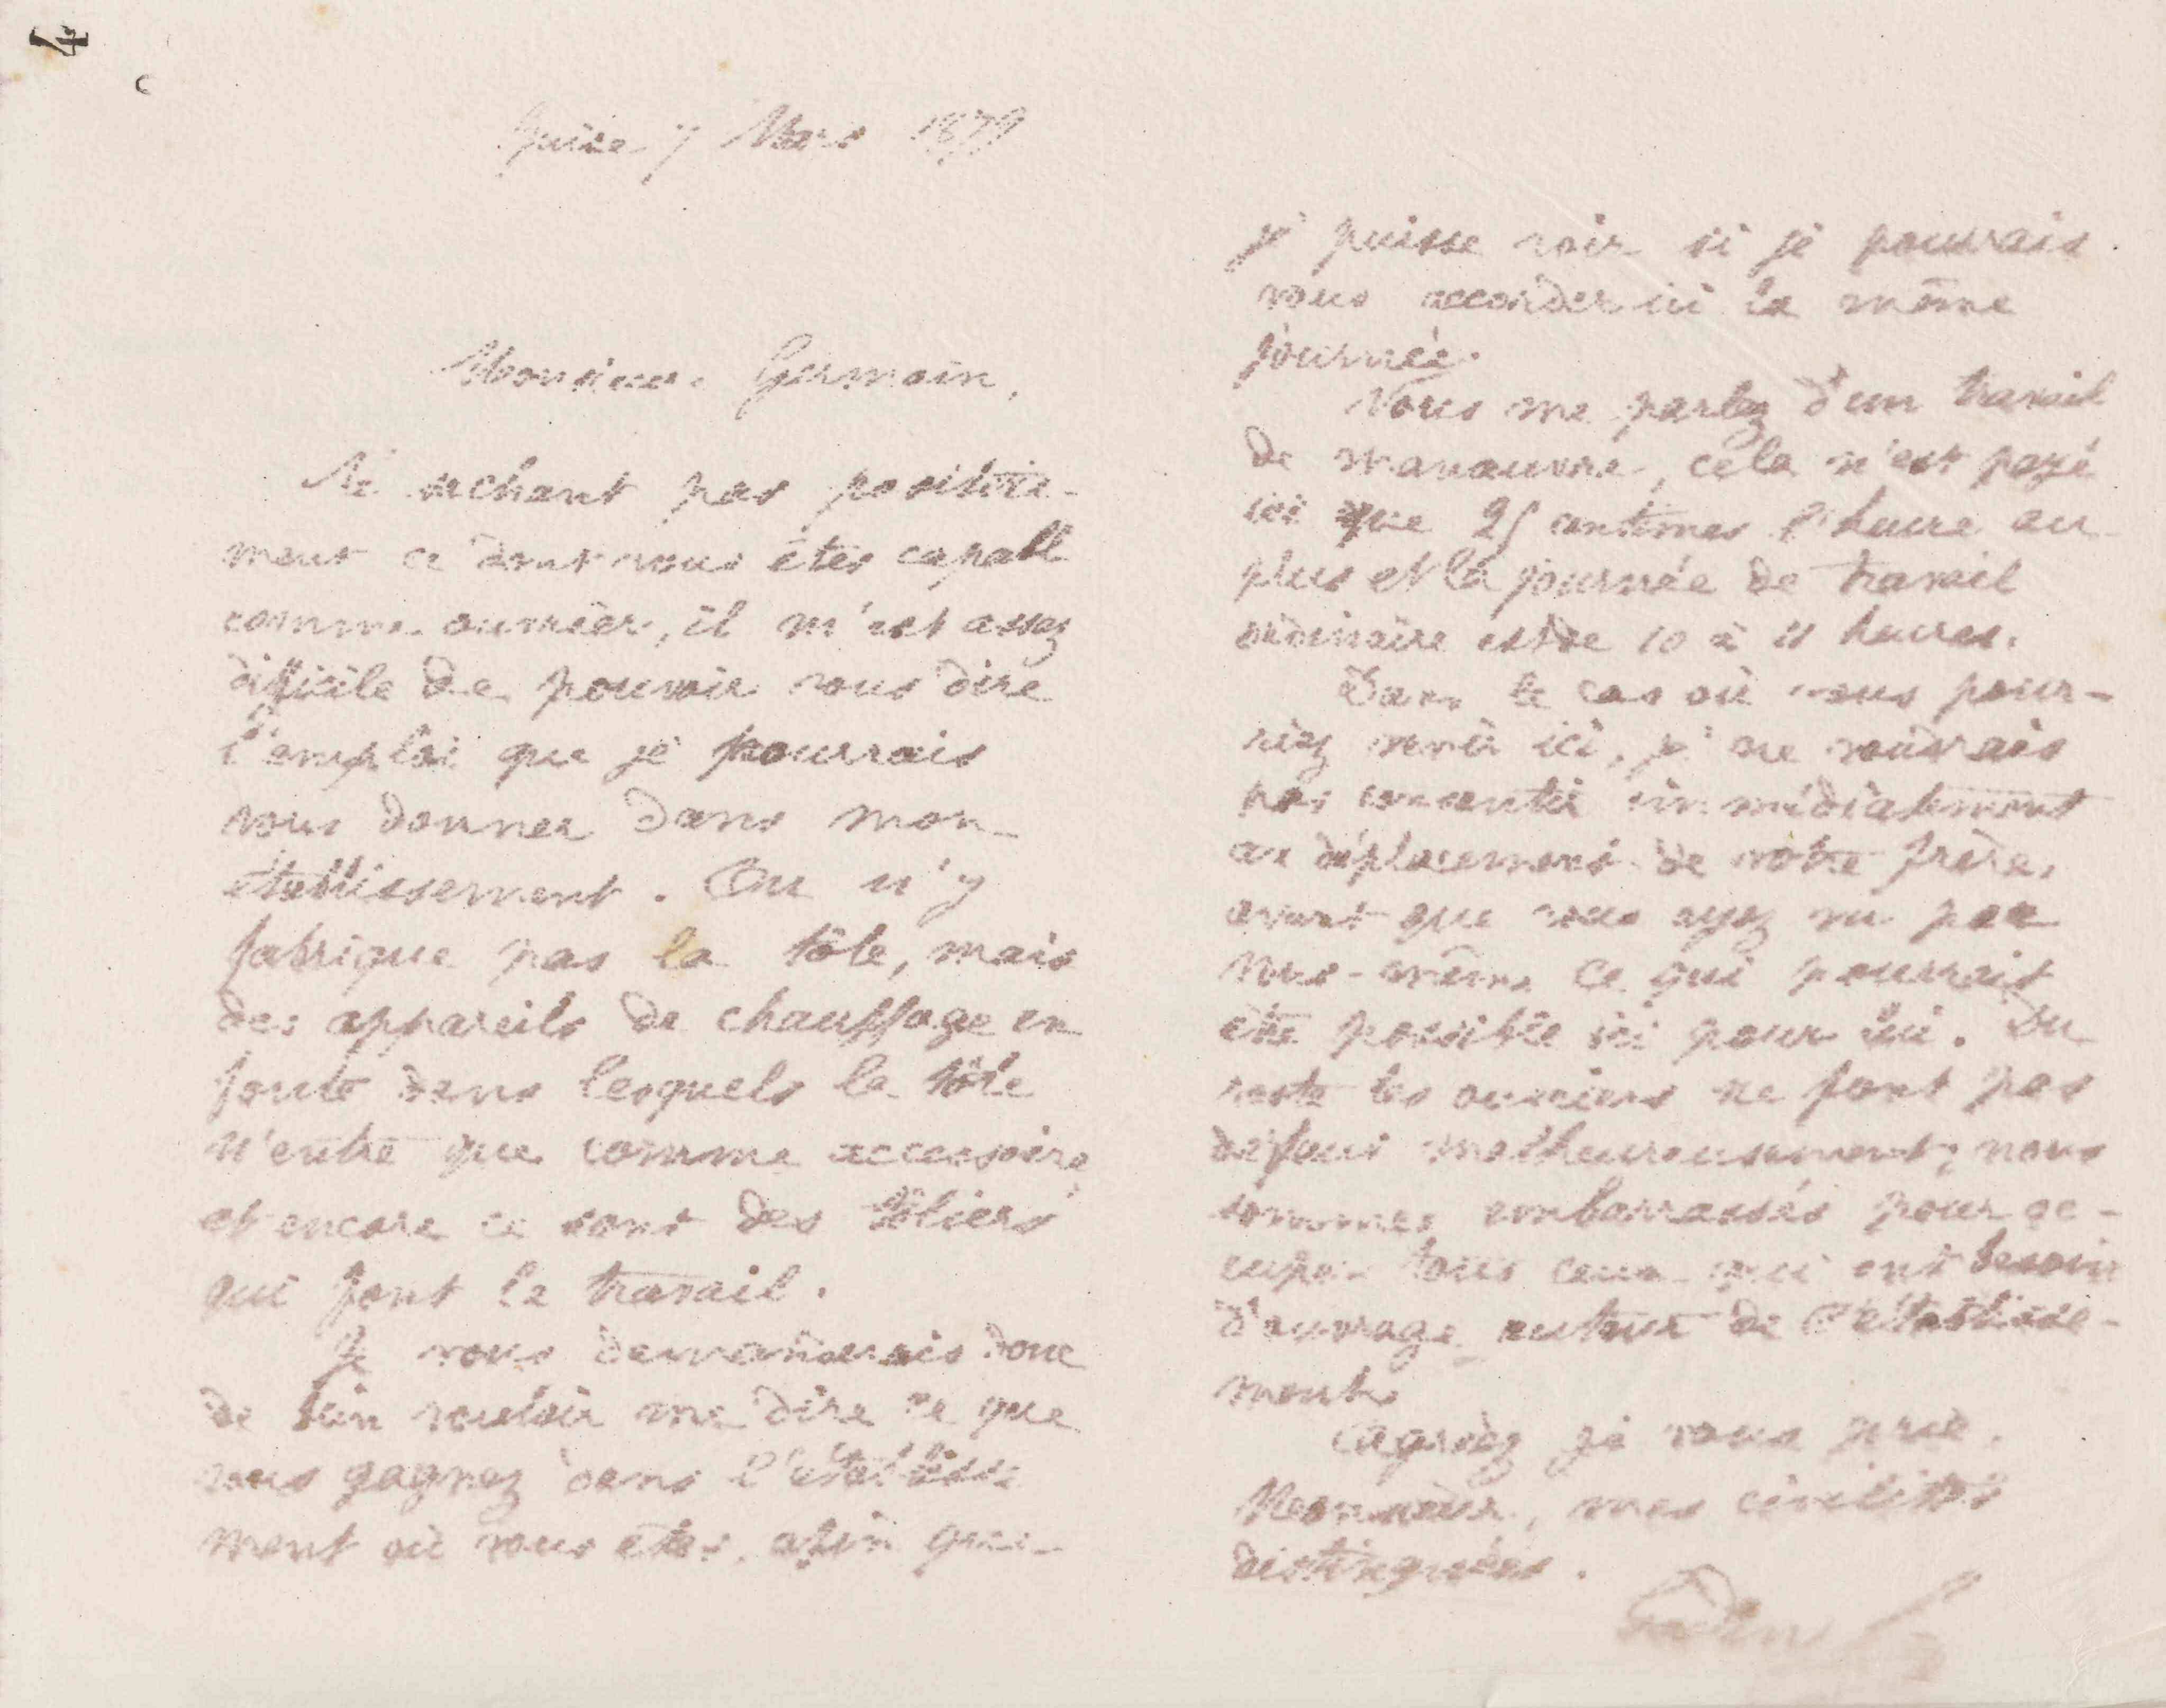 4
Guise 7 Mars 1879
Monsieur Germain,
Ne sachant pas positive-
ment ce dont vous êtes capable
comme ouvrier, il m'est assez
difficile de pouvoir vous dire
l'emploi que je pourrais
vous donner dans mon
établissement. On n'y
fabrique pas la tôle, mais
des appareils de chauffage en
fonte dans lesquels la tôle
n'entre que comme accessoire
et encore ce sont des tôliers
qui font le travail.
Je vous demanderais donc
de bien vouloir me dire ce que
vous gagnez dans l'établisse
ment où vous êtes, afin que
je puisse voir si je pourrais
vous accorder ici la même
journée.
Vous me parlez d'un travail
de manœuvre, cela n'est payé
ici que 25 centimes l'heure au
plus et la journée de travail
ordinaire est de 10 à 11 heures.
Dans le cas où vous pour-
riez venir ici, je ne voudrais
pas consentir immédiatement
au déplacement de votre frère,
avant que vous ayez vu par
vous-même ce qui pourrait
être possible ici pour lui. Du
reste les ouvriers ne font pas
défaut malheureusement; nous
sommes embarrassés pour oc-
cuper tous ceux qui ont besoin
d'ouvrage autour de l'établisse-
ment.
Agréez je vous prie,
Monsieur, mes civilités
distinguées.
Godin